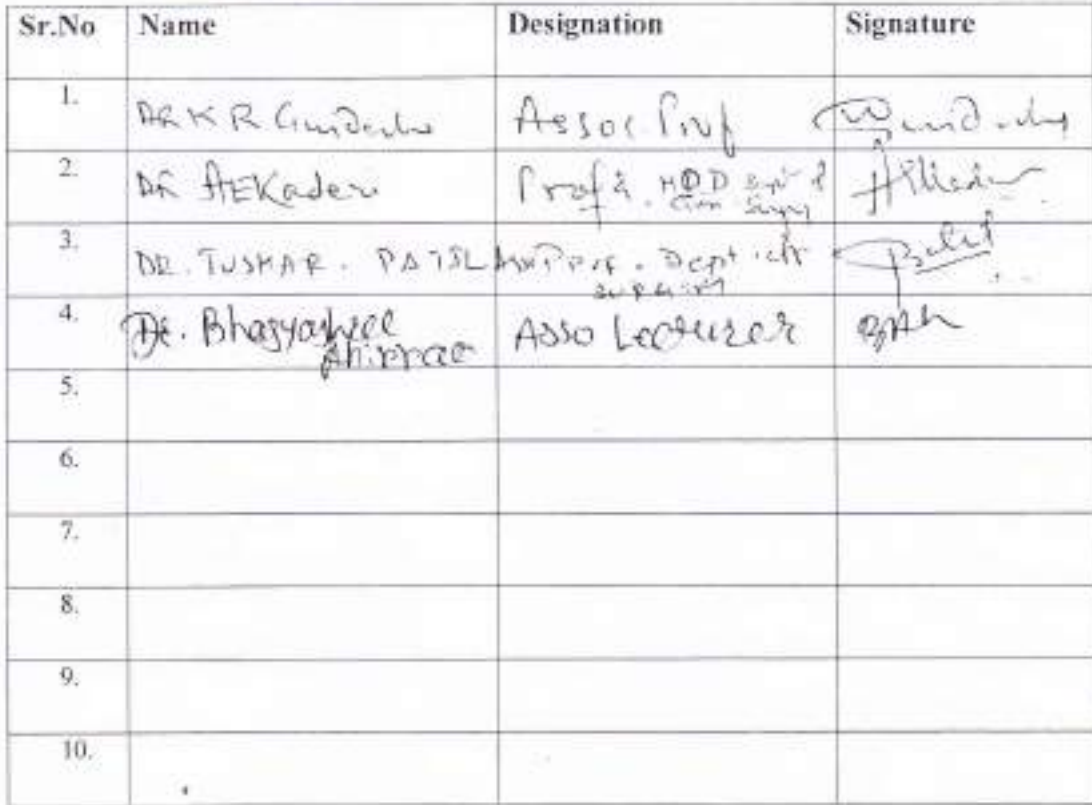 Sr.No Name Designation Signature
1. DR K R Gindecha Assoc. Prof
2. DR AEKaderi Prof & HOD Dept of
Gen Surgery
3. DR. TUSHAR. PATIL Asst Prof. Dept of
SURGERY
4. Dr. Bhagyashree Asso Lecturer
Ahirrao
5.
6.
7.
8.
9.
10.